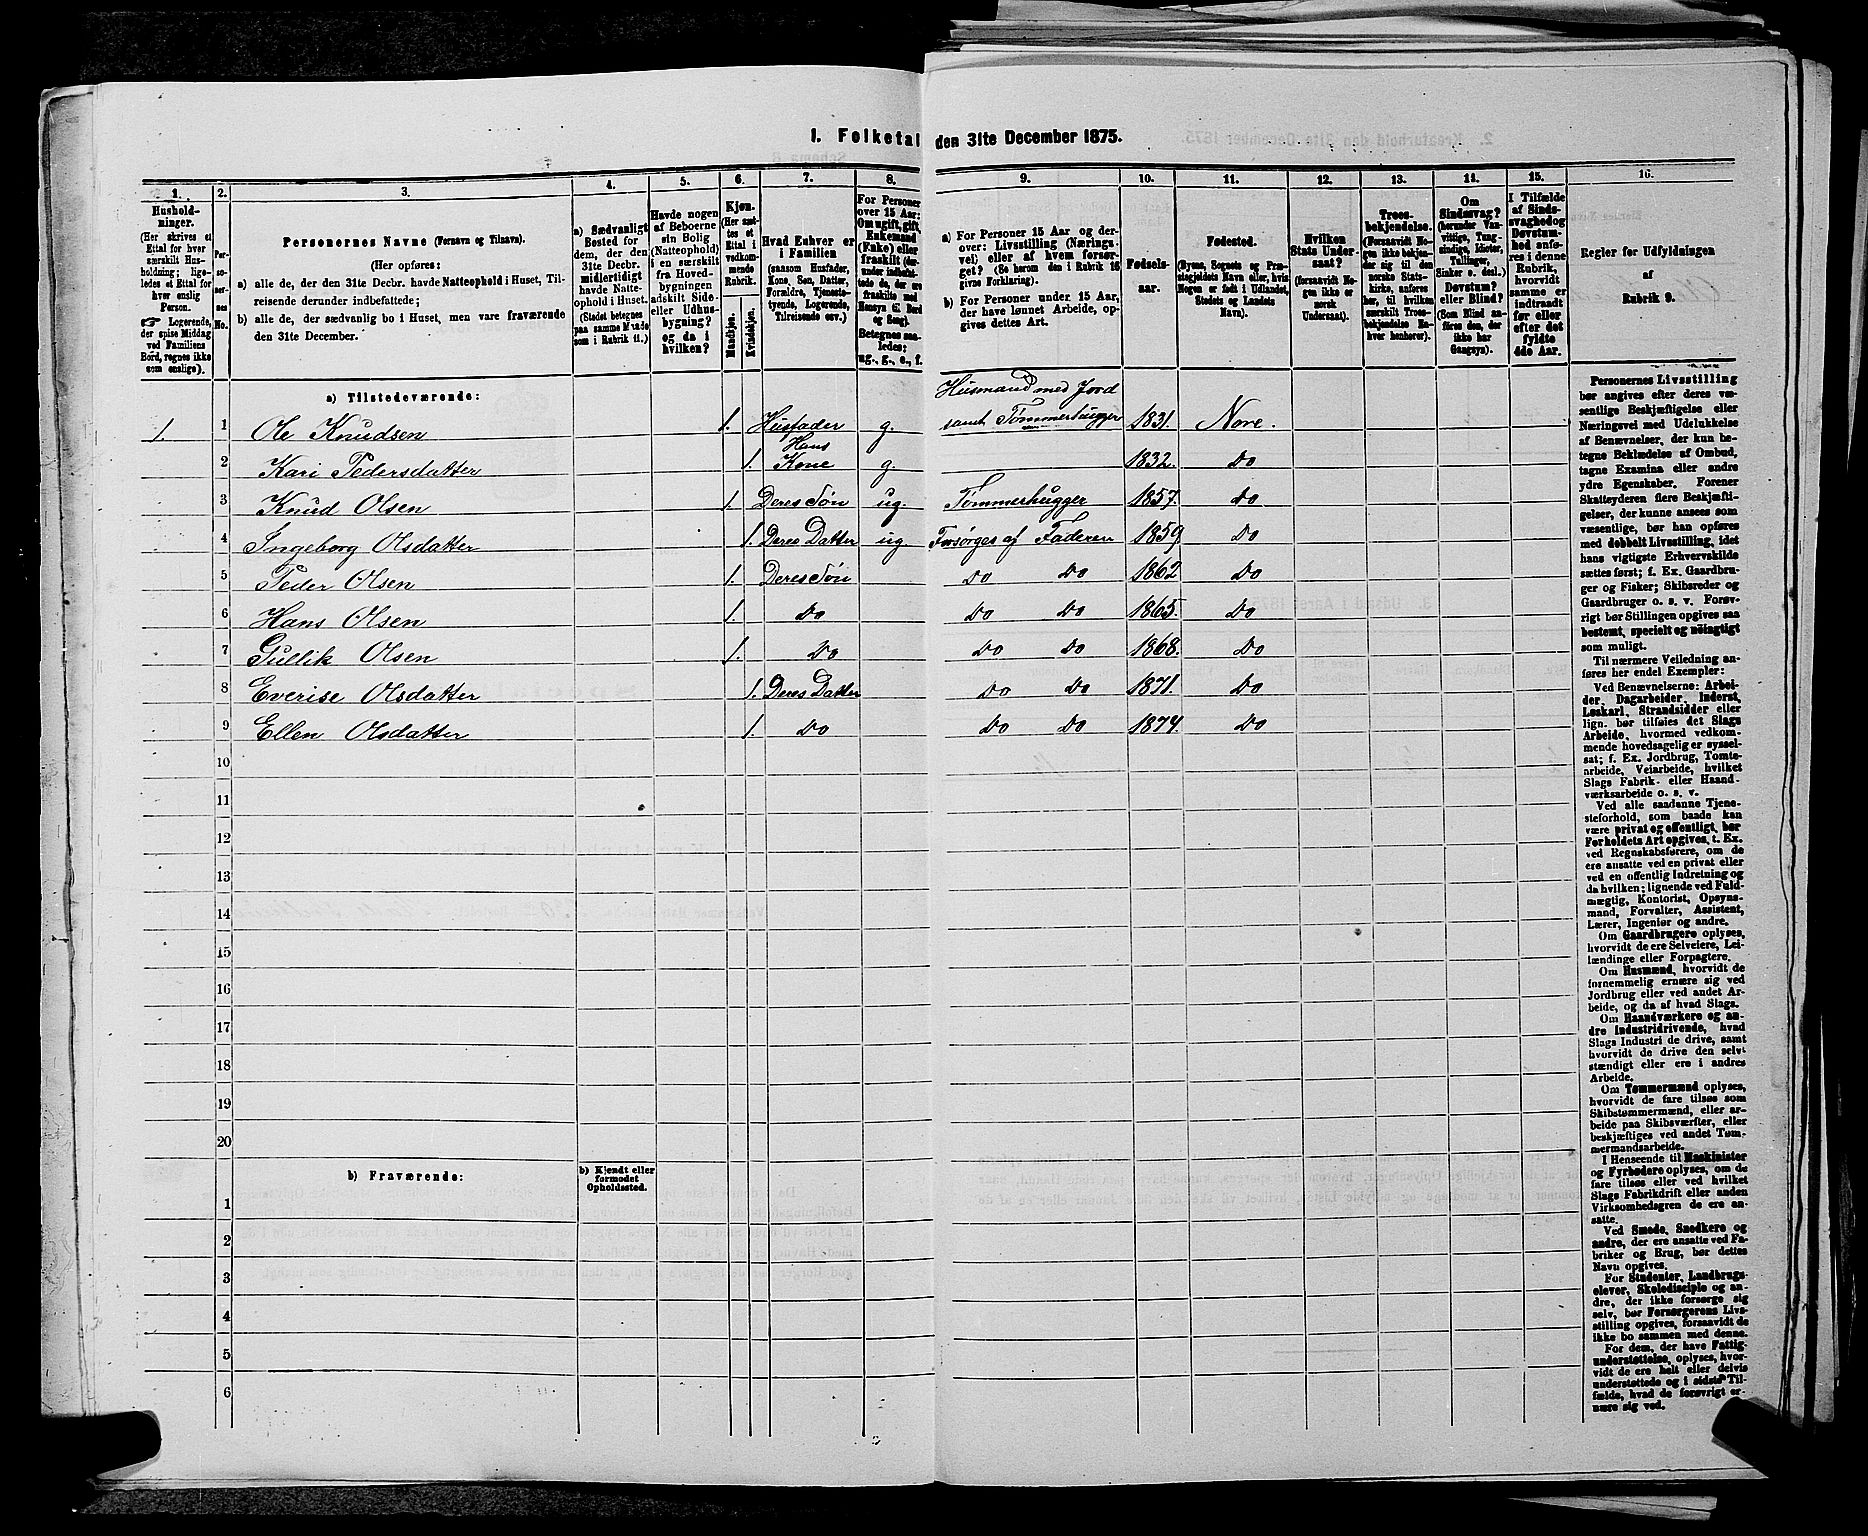 1. Folketal den 31te December 1875.
1. 2. 3. 4. 5. 6. 7. 8. 9. 10. 11. 12. 13. 14. 15. 16.
Hushold-
ninger.
(Her skrives et
Ettal for hver
særskilt Hus-
holdning; lige-
ledes et Ettal for
hver enslig
Person.
☞ Logerende,
der spise Middag
ved Familiens
Bord, regnes ikke
som enslige).
Per-
so-
ner-
nes
No.
Personernes Navne (Fornavn og Tilnavn).
(Her opføres:
a) alle de, der den 31te Decbr. havde Natteophold i Huset, Til-
reisende derunder indbefattede;
b) alle de, der sædvanlig bo i Huset, men vare fraværende
den 31te December.
a) Sædvanligt
Bosted for
dem, der den
31te Decbr.
midlertidigt
havde Natte-
ophold i Huset.
(Stedet betegnes
paa samme Maade
som i Rubrik 11.)
Havde nogen
af Beboerne
sin Bolig
(Natteophold)
i en særskilt
fra Hoved-
bygningen
adskilt Side-
eller Udhus-
bygning?
og da i
hvilken?
Kjøn.
(Her sæt-
tes et
Ettal i
vedkom-
mende
Rubrik.
Mandkjøn.
Kvindekjøn.
Hvad Enhver er
i Familien
(saasom Husfader,
Kone, Søn, Datter,
Forældre, Tjeneste-
tyende, Logerende,
Tilreisende osv.)
For Personer
over 15 Aar:
Om ugift, gift,
Enkemand
(Enke) eller
fraskilt (der-
under indbefat-
tede de, der ere
fraskilte med
Hensyn til Bord
og Seng).
Betegnes saa-
ledes:
ug., g., e., f.
a) For Personer 15 Aar og der-
over: Livsstilling (Nærings-
vei) eller af hvem forsør-
get? (Se herom den i Rubrik 16
givne Forklaring).
b) For Personer under 15 Aar,
der have lønnet Arbeide, op-
gives dettes Art.
Fødsels-
aar.
Fødested.
(Byens, Sognets og Præ-
stegjeldets Navn eller, hvis
Nogen er født i Udlandet,
Stedets og Landets
Navn).
Hvilken
Stats Under-
saat?
(forsaavidt No-
gen ikke er
norsk
Undersaat).
Troes-
bekjendelse.
(Forsaavidt No-
gen ikke bekjen-
der sig til den
norske Stats-
kirke, anføres
her, til hvilken
særskilt Troes-
bekjendelse En-
hver henhører).
Om
Sindssvag?
(herunder Van-
vittige, Tung-
sindige, Idioter,
Tullinger,
Sinker o. desl.)
Døvstum?
eller Blind?
(Som Blind an-
føres den, der
ikke har
Gangsyn).
I Tilfælde
af Sinds-
svaghed og
Døvstum-
hed anfø-
res i denne
Rubrik,
hvorvidt
samme er
indtraadt
før eller
efter det
fyldte
4de Aar.
Regler for Udfyldningen
af
Rubrik 9.
a) Tilstedeværende:
Husmand med Jord
1. 1 Ole Knudsen 1. Husfader g. samt Tømmerhugger 1831. Nore.
Hans
2 Kari Pedersdatter 1. Kone g. 1832. Do
3 Knud Olsen 1. Deres Søn ug. Tømmerhugger 1857. Do
4 Ingeborg Olsdatter 1. Deres Datter ug Forsørges af Faderen 1859 Do
5 Peder Olsen 1. Deres Søn Do Do 1862 Do
6 Hans Olsen 1. Do Do Do 1865. Do
7 Gullik Olsen 1. Do Do Do 1868. Do
8 Everise Olsdatter 1. Deres Datter Do Do 1871. Do
9 Ellen Olsdatter 1. Do Do Do 1874. Do
10
11
12
13
14
15
16
17
18
19
20
b) Fraværende:
b) Kjendt eller
formodet
Opholdssted.
1
2
3
4
5
6
Personernes Livsstilling
bør angives efter deres væ-
sentlige Beskjæftigelse eller
Næringsvei med Udelukkelse
af Benævnelser, der kun be-
tegne Beklædelse af Ombud,
tagne Examina eller andre
ydre Egenskaber. Forener
Skatteyderen flere Beskjæfti-
gelser, der kunne ansees som
væsentlige, bør han opføres
med dobbelt Livsstilling, idet
hans vigtigste Erhvervskilde
sættes først; f. Ex. Gaardbru-
ger og Fisker; Skibsreder og
Gaardbruger o. s. v. Forøv-
rigt bør Stillingen opgives saa
bestemt, specielt og nøiagtigt
som muligt.
Til nærmere Veiledning an-
føres her endel Exempler:
Ved Benævnelserne: Arbei-
der, Dagarbeider, Inderst,
Løskarl, Strandsidder eller
lign. bør tilføies det Slags
Arbeide, hvormed vedkom-
mende hovedsagelig er syssel-
sat; f. Ex. Jordbrug, Tomte-
arbeide, Veiarbeide, hvilket
Slags Fabrik- eller Haand-
værksarbeide o. s. v.
Ved alle saadanne Tjene-
steforhold, som baade kan
være privat og offentligt, bør
Forholdets Art opgives, t. Ex.
ved Regnskabsførere, om de
ere ansatte ved en privat eller
ved en offentlig Indretning og
da hvilken; lignende ved Fuld-
mægtig, Kontorist, Opsyns-
mand, Forvalter, Assistent,
Lærer, Ingeniør og andre.
Om Gaardbrugere oplyses,
hvorvidt de ere Selveiere, Lei-
lændinge eller Forpagtere.
Om Husmænd, hvorvidt de
fornemmelig ernære sig ved
Jordbrug eller ved andet Ar-
beide, og da af hvad Slags.
Om Haandværkere og an-
dre Industridrivende, hvad
Slags Industri de drive, samt
hvorvidt de drive den selv-
stændigt eller ere i andres
Arbeide.
Om Tømmermænd oplyses,
hvorvidt de fare tilsøs som
Skibstømmermænd, eller ar-
beide paa Skibsværfter, eller
beskjæftiges ved andet Tøm-
mermandsarbeide.
I Henseende til Maskinister
og Fyrbødere oplyses, om de
fare tilsøs eller ved hvilket
Slags Fabrikdrift eller anden
Virksomhedsgren de ere an-
satte.
Ved Smede, Snedkere og
andre, der ere ansatte ved Fa-
briker og Brug, bør dettes
Navn opgives.
For Studenter, Landbrugs-
elever, Skoledisciple og an-
dre, der ikke forsørge sig
selv, bør Forsørgerens Livs-
stilling opgives, forsaavidt de
ikke bo sammen med denne.
For dem, der have Fattig-
understøttelse, oplyses, hvor-
vidt de ere helt eller delvis
understøttede og i sidste Til-
fælde, hvad de forøvrigt er-
nære sig ved.